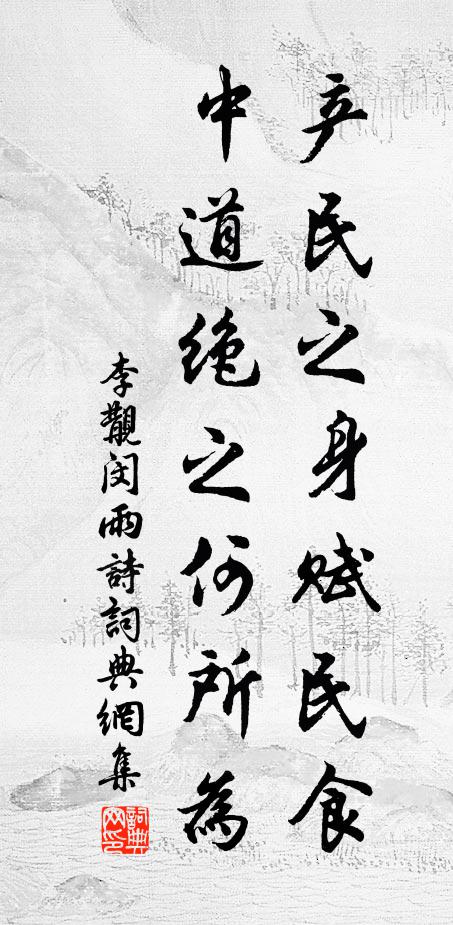 产民之身赋民食
中道绝之何所為
李覯闵雨詩詞典網集
詞典网印